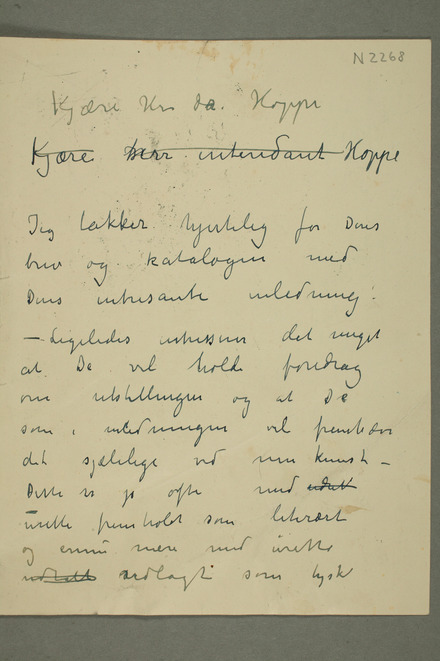 N 2268
Kjære Hr. da. Hoppe
Kjære herr intendant Hoppe
Jeg takker hjertelig for Deres
brev og katalogen med
Deres intresante inledning!
– Ligeledes intresserer det meget
at De vil holde foredrag
om utstillingen og at De
som i inledningen vil fremhæve
det sjælelige ved min kunst –
Dette er jo ofte med
urette fremholdt som literært
og ennu mere med urette
utlagt som tysk